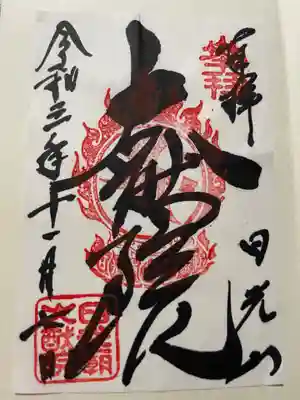 奉拝
日光山
大猷院
令和三年十一月 日
日光廟
大猷院